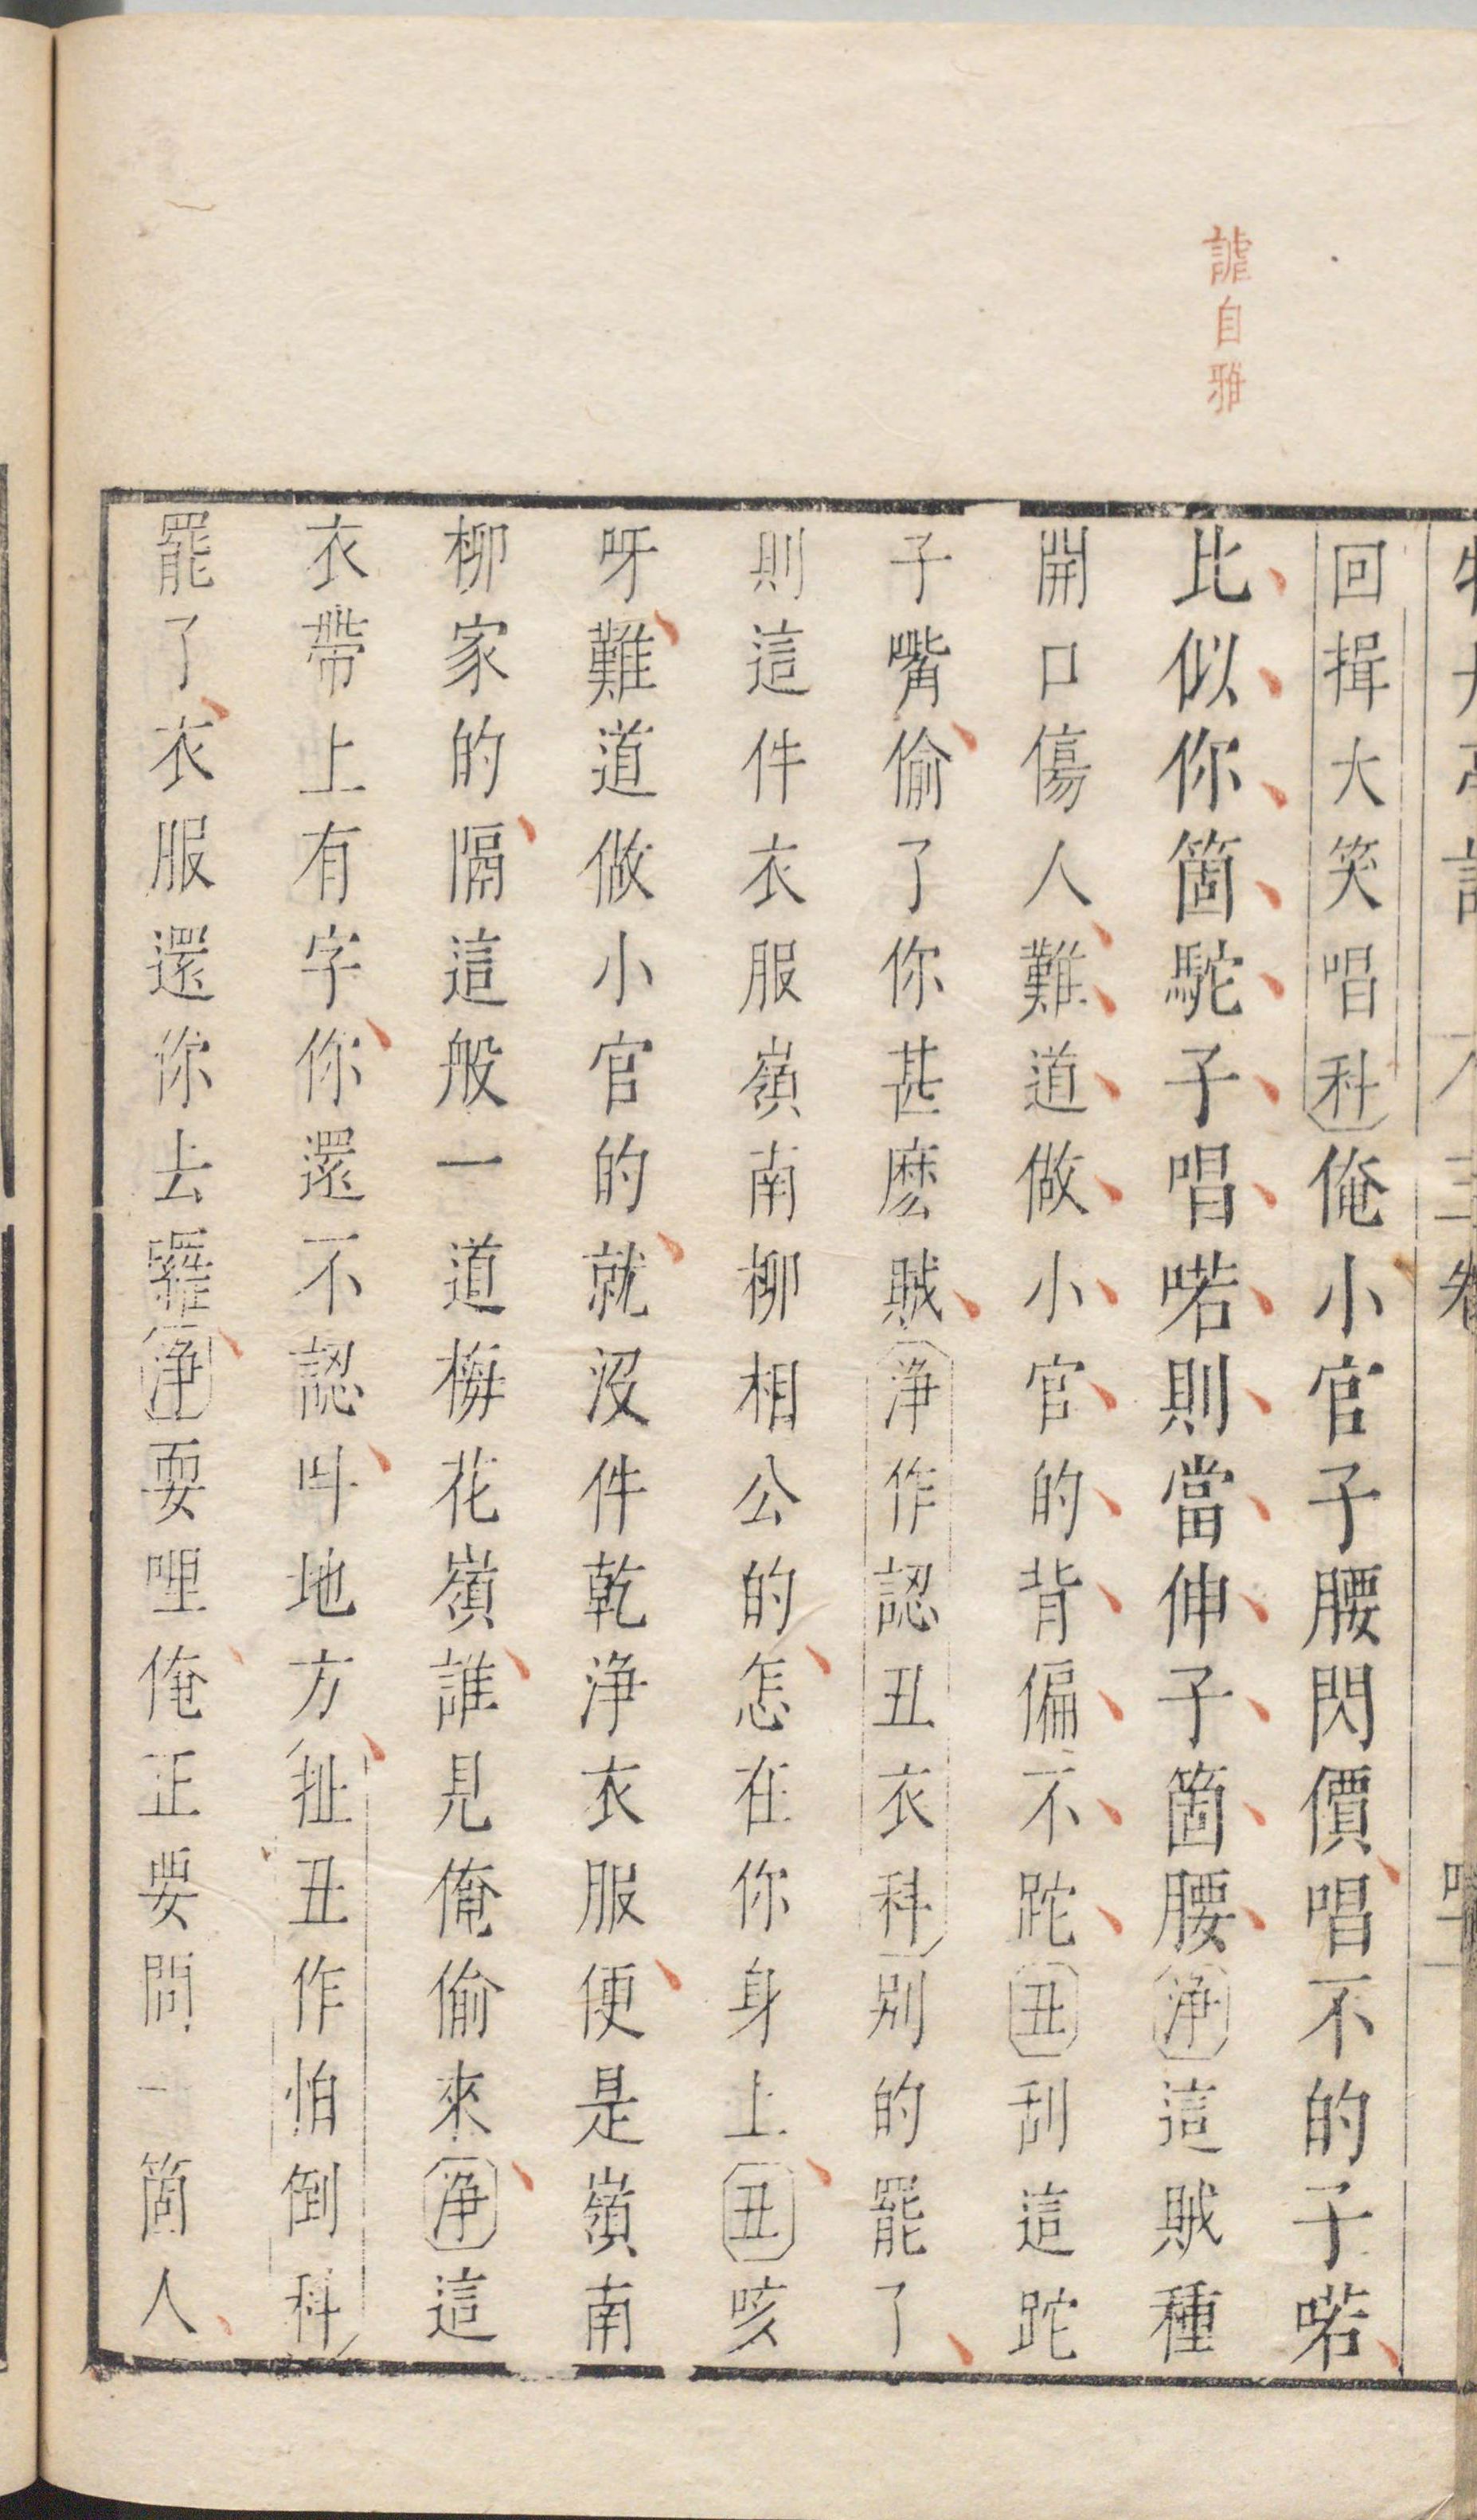 牡丹亭記 卷
謔自雅
回揖大笑唱科俺小官子腰閃價唱不的子喏
比似你箇駝子唱喏則當伸子箇腰淨這賊種
開口傷人難道做小官的背偏不跎丑刮這跎
子嘴偷了你甚麽賊淨作認丑衣科别的罷了
則這件衣服嶺南柳相公的怎在你身上丑咳
呀難道做小官的就沒件乾淨衣服便是嶺南
柳家的隔這般一道梅花嶺誰見俺偷來淨這
衣帶上有字你還不認呌地方扯丑作怕倒科
罷了衣服還你去囉淨耍哩俺正要問一箇人